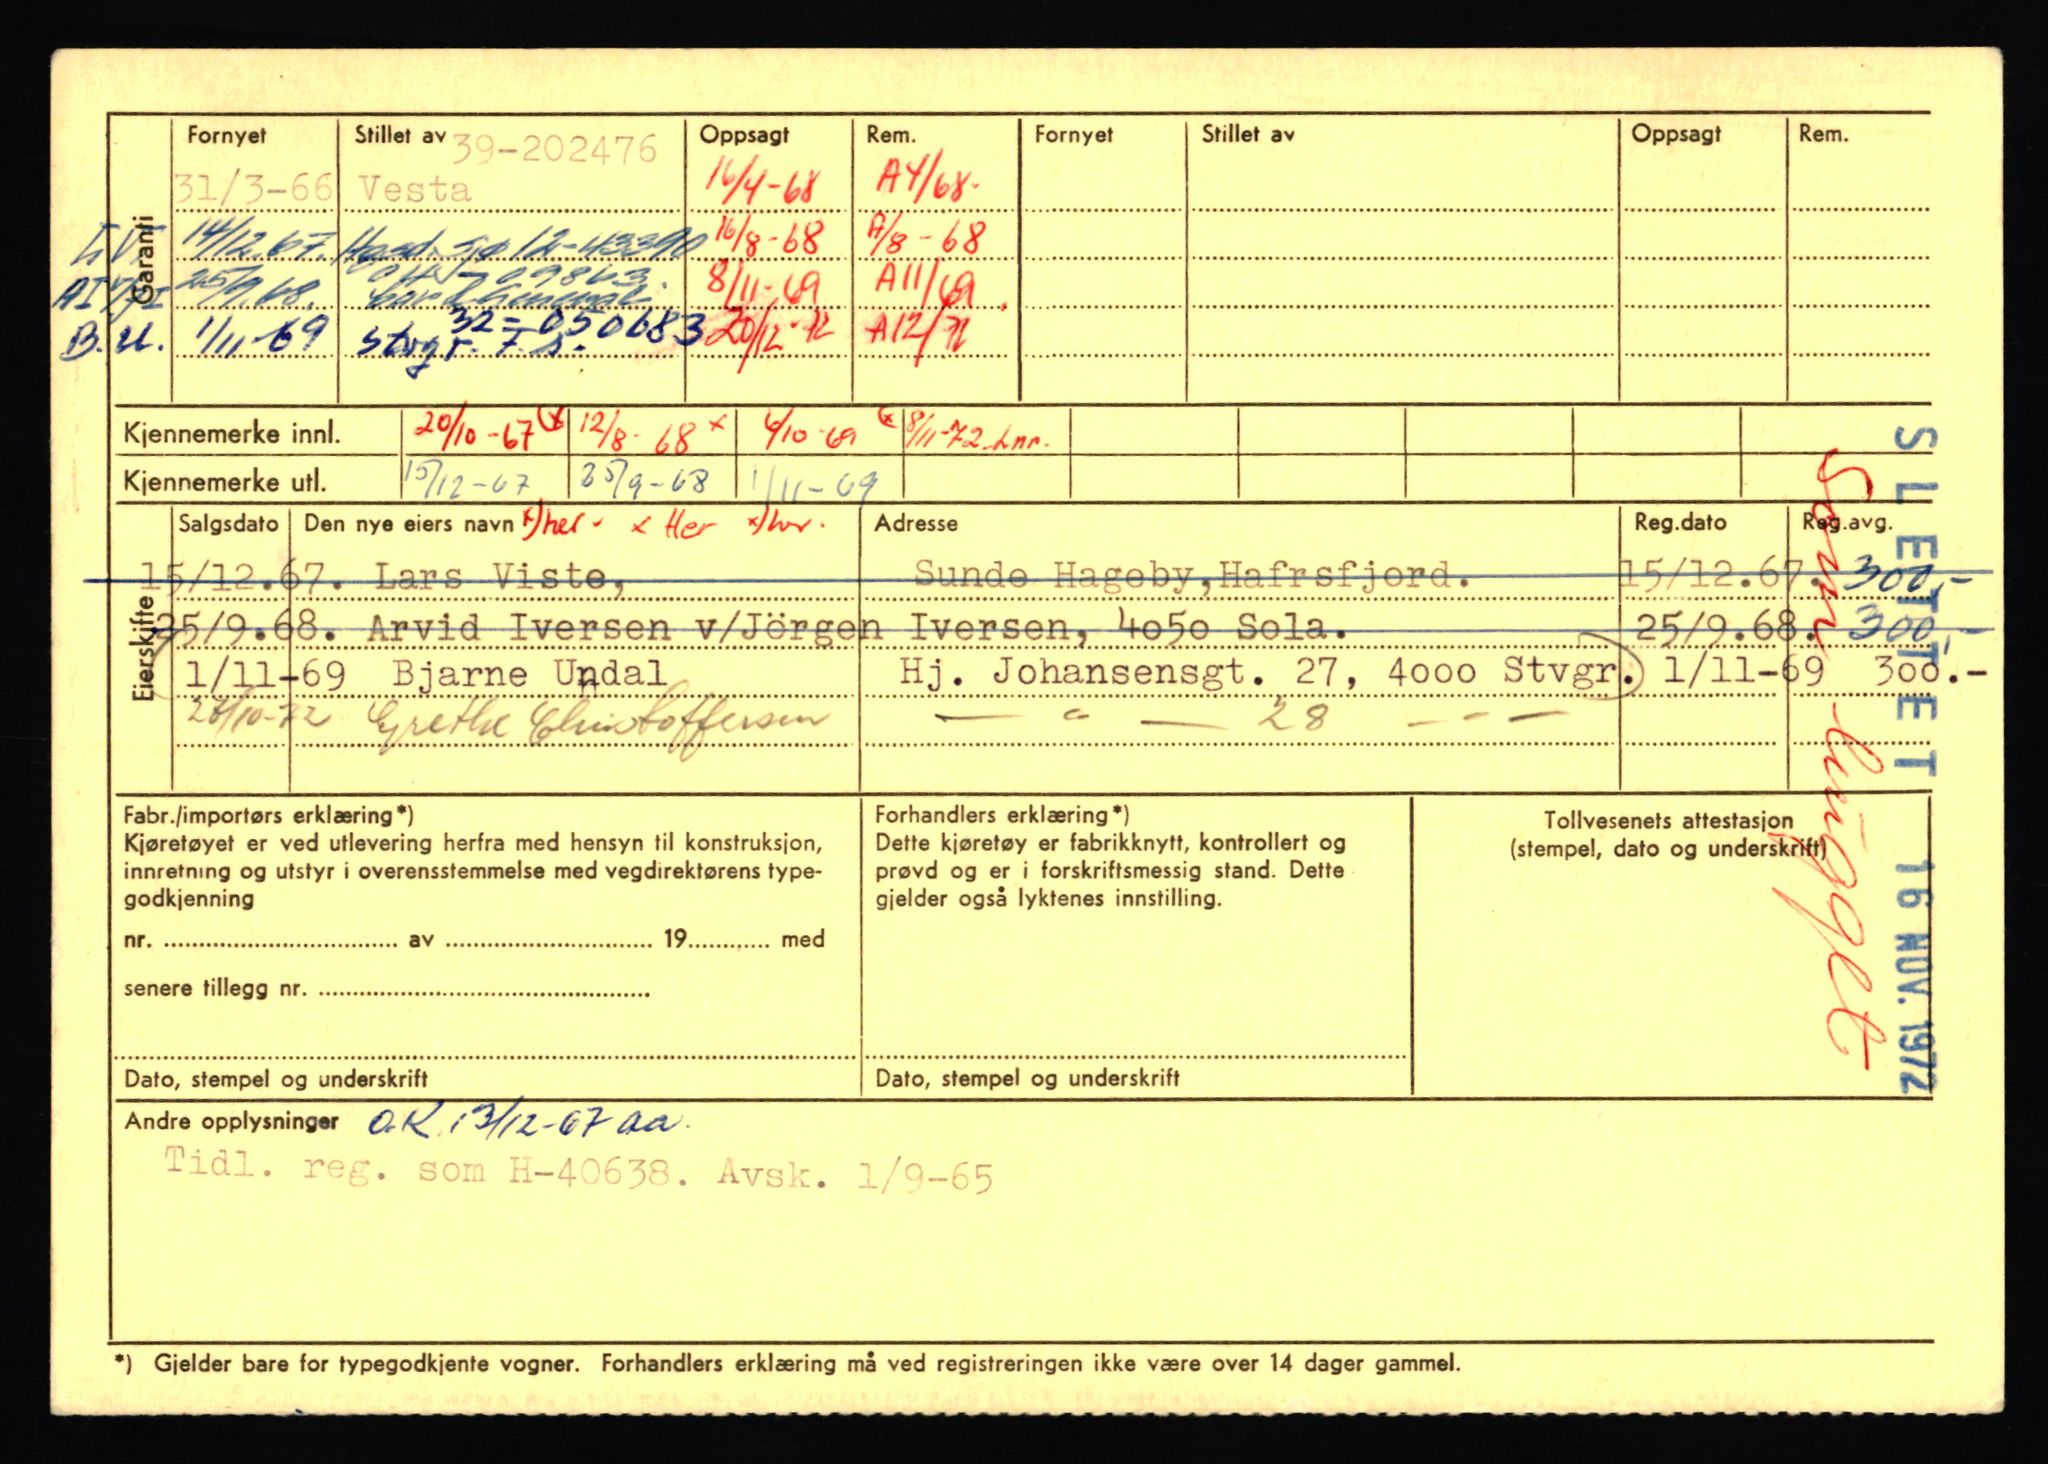 Garanti
Fornyet Stillet av 39-202476 Oppsagt Rem. Fornyet Stillet av Oppsagt Rem.
31/3-66 Vesta 16/4-68 A4/68.
14/12.67. 12-43390 16/8-68 A/8-68
25/9.68. 8/11-69 A11/69
B.U. 1/11-69 32-050683 Stvgr. F. s. 20/12-72 A12/72
Kjennemerke innl. 20/10-67 (x 12/8-68 x 4/10-69 (x 8/11-72
Kjennemerke utl. 15/12-67 25/9-68 1/11-69
Eierskifte
Salgsdato Den nye eiers navn x) her x Her x) her. Adresse Reg.dato Reg.avg.
15/12.67. Lars Viste, Sunde Hageby,Hafrsfjord. 15/12.67. 300,-
25/9.68. Arvid Iversen v/Jörgen Iversen, 4050 Sola. 25/9.68. 300,-
1/11-69 Bjarne Undal Hj. Johansensgt. 27, 4000 Stvgr. 1/11-69 300.-
Grethe Christoffersen — " — 28 — - —
SLETTET 16 NOV. 1972
Som hugget
Fabr./importørs erklæring*)
Kjøretøyet er ved utlevering herfra med hensyn til konstruksjon,
innretning og utstyr i overensstemmelse med vegdirektørens type-
godkjenning
nr. .................... av .................... 19............ med
senere tillegg nr. ....................
Dato, stempel og underskrift
Forhandlers erklæring*)
Dette kjøretøy er fabrikknytt, kontrollert og
prøvd og er i forskriftsmessig stand. Dette
gjelder også lyktenes innstilling.
Dato, stempel og underskrift
Tollvesenets attestasjon
(stempel, dato og underskrift)
Andre opplysninger O.K. 13/12-67 aa.
Tidl. reg. som H-40638. Avsk. 1/9-65
*) Gjelder bare for typegodkjente vogner. Forhandlers erklæring må ved registreringen ikke være over 14 dager gammel.